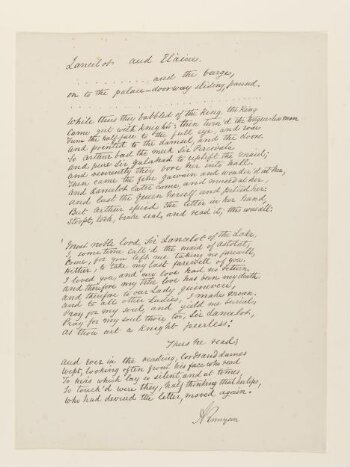 Lancelot and Elaine.
. . . . . . . . . . . . . . . .
. . . . . . . . and the barge,
on to the palace-doorway sliding, paused.
. . . . . . . . . . . . . . . .
While thus they babbled of the King, the King
Came girt with Knights: then turn'd the tongueless man
From the half-face to the full eye, and rose
And pointed to the damsel, and the doors.
So Arthur bad the meek Sir Percivale
And pure Sir Galahad to uplift the maid;
And reverently they bore her into hall.
Then came the fine Gawain and wonder'd at her,
And Lancelot later came, and mused at her,
And last the Queen herself and pitied her:
But Arthur spied the letter in her hand,
Stoopt, took, brake seal, and read it; this was all:
'Most noble lord, Sir Lancelot of the Lake,
I, sometime call'd the maid of Astolat,
Come, for you left me taking no farewell,
Hither, to take my last farewell of you.
I loved you, and my love had no return,
And therefore my true love has been my death.
And therefore to our Lady Guinevere,
And to all other Ladies, I make moan.
Pray for my soul, and yield me burial.
Pray for my soul thou too, Sir Lancelot,
As thou art a Knight peerless.'
Thus he read;
And ever in the reading, lords and dames
Wept, looking often from his face who read
To hers which lay so silent, and at times,
So touch'd were they, half-thinking that her lips,
Who had devised the letter, moved again.
ATennyson